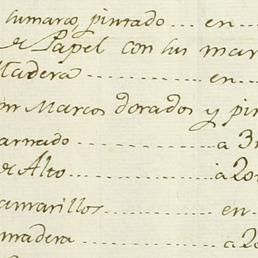 su marco, pintado .... en
de Papel con sus mar
Madera ............ en
on Marcos dorados y pin
arnado ............ a 3
de Alto ............ à 20
amarillos ............ en
madera ............ a 2